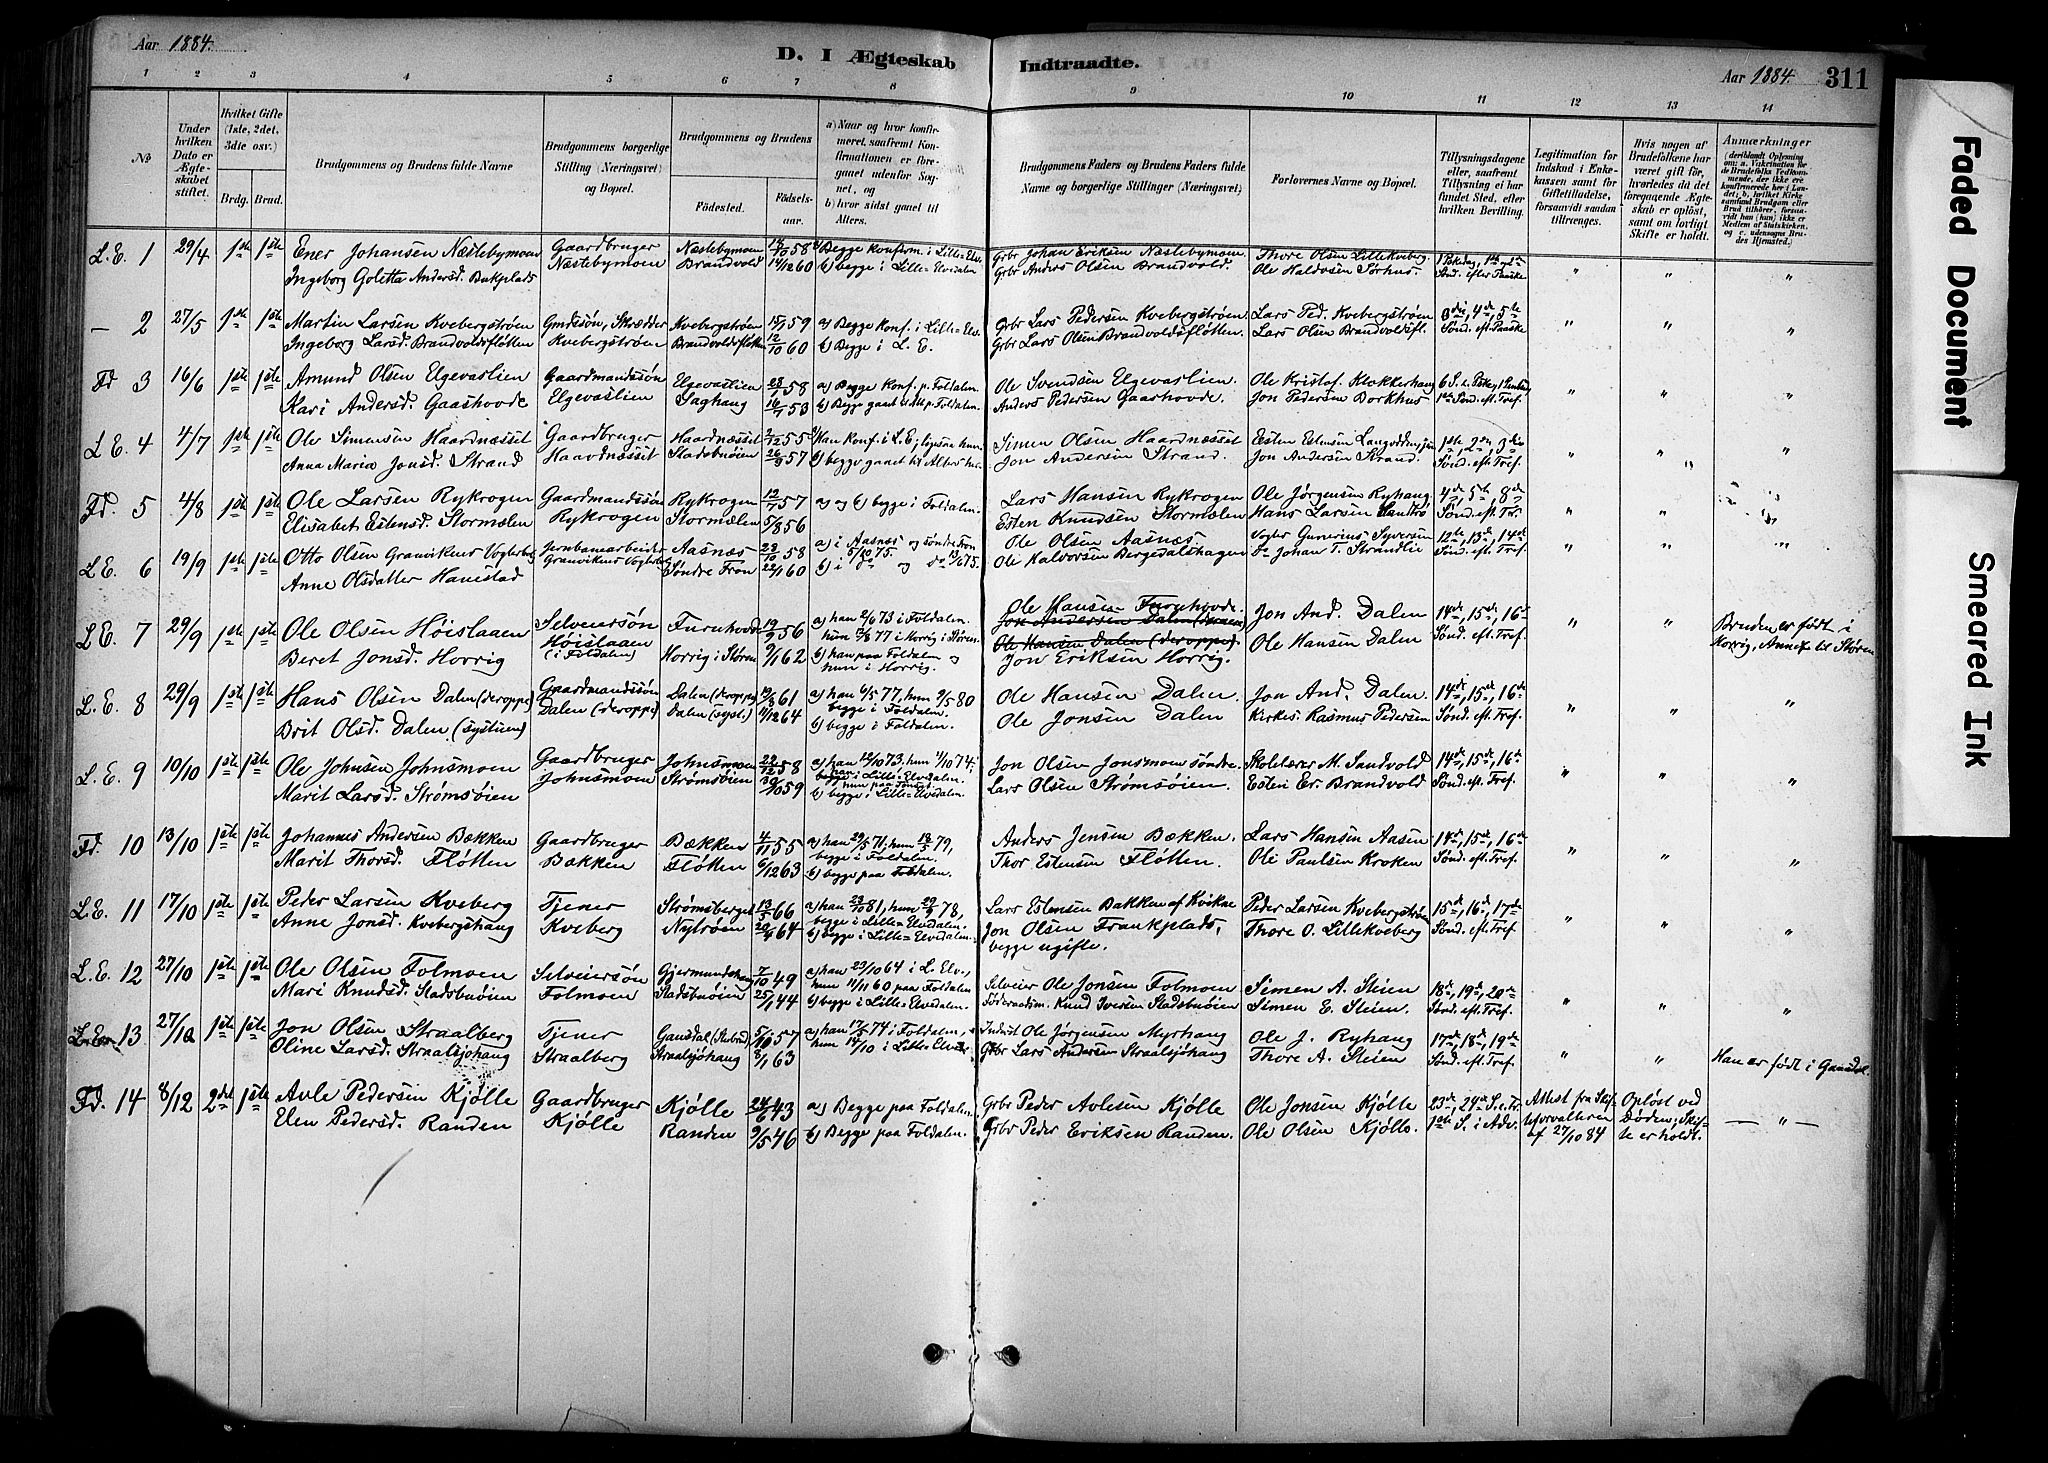 Aar 1884.
D. I Ægteskab Indtraadte.
Aar 1884. 311
1 2 3 4 5 6 7 8 9 10 11 12 13 14
No
Under hvilken Dato er Ægteskabet stiftet.
Hvilket Gifte (1ste, 2det, 3die osv.)
Brdg. Brud.
Brudgommens og Brudens fulde Navne
Brudgommens borgerlige Stilling (Næringsvei) og Bopæl.
Brudgommens og Brudens
Fødested. Fødselsaar.
a) Naar og hvor konfirmeret, saafremt Konfirmationen er foregaaet udenfor Sognet, og
b) hvor sidst gaaet til Alters.
Brudgommens Faders og Brudens Faders fulde Navne og borgerlige Stillinger (Næringsvei)
Forlovernes Navne og Bopæl.
Tillysningsdagene eller, saafremt Tillysning ei har fundet Sted, efter hvilken Bevilling.
Legitimation for Indskud i Enkekassen samt for Giftetilladelse, forsaavidt saadan tiltrænges.
Hvis nogen af Brudefolkene har været gift før, hvorledes da det foregaaende Ægteskab er opløst, samt om lovligt Skifte er holdt.
Anmærkninger
L.E. 1 29/4 1ste 1ste Ener Johansen Næstebymoen Gaardbruger Næstebymoen 58 Begge konfirm. i Lille-Elv. Grbr Johan Eriksen Næstebymoen. Thore Olsen Lillekveberg
Ingeborg Goletta Andersd. Bakplads Næstebymoen Brandvold 14/12 60 b) begge i Lille-Elvedalen Grbr Anders Olsen Brandvold. Ole Halvorsen Sørhus. Sønd. efter Paaske " " "
— 2 27/5 1ste 1ste Martin Larsen Kvebergstrøen Gmdssøn, Skrædder Kvebergstrøen 15/1 59 a) Begge konf. i Lille-Elv. Grbr Lars Pedersen Kvebergstrøen Lars Ped. Kvebergstrøen 3die, 4de, 5te
Ingeborg Larsd. Brandvoldsfløtten Kvebergstrøen Brandvoldsfløtten 12/10 60 b) Begge i L. E. Grbr Lars Olsen Brandvoldsfløtten. Lars Olsen Brandvoldsfl. Sønd. eft Paaske " " "
Fd 3 16/6 1ste 1ste Amund Olsen Elgevaslien Gaardmandssøn Elgevaslien 58 a) Begge konf. p. Foldalen. Ole Svendsen Elgevaslien. Ole Kristof. Klokkerhaug
Kari Andersd. Gaashovde Elgevaslien Saghaug 16/1 53 b) Begge gaaet til Alt. p. Foldalen. Anders Pedersen Gaashovde. Jon Pedersen Borkhus 1ste Sønd. eft. Tref. " " "
L E. 4 4/7 1ste 1ste Ole Simensen Haardnæsset Gaardbruger Haardnæsset 2/12 55 Han konf. i L.E; ligesaa hun. Simen Olsen Haardnæsset Esten Estensen Langodden, 1ste, 2den, 3die
Anna Maria Jonsd. Strand Haardnæsset Stadsbuøien 26/9 57 b) begge gaaet til Alters her. Jon Andersen Strand. Jon Andersen Strand. Sønd. eft. Tref. " " "
Fd. 5 4/8 1ste 1ste Ole Larsen Rykrogen Gaardmandssøn Rykrogen 12/7 57 a) og b) begge i Foldalen. Lars Hansen Rykrogen Ole Jørgensen Ryhaug 4de, 5te, 8de
Elisabet Estensd. Stormælen Rykrogen Stormælen 5/8 56 Esten Knudsen Stormælen Hans Larsen Sønd. eft. Tr. " "
L E. 6 19/9 1ste 1ste Otto Olsen Granvikens Voglerb. Jernbanearbeider Aasnæs 58 a) i Aasnæs og søndre Fron Ole Olsen Aasnæs Vogter Gunerius Syversen 12te, 13de, 14de
Anne Olsdatter Hanestad Granvikens Voglerb. Søndre Fron 22/1 60 b) i do og do Ole Halvorsen Bergedalshagen do Johan T. Strandlie Sønd. eft Tref. " " "
L E. 7 29/9 1ste 1ste Ole Olsen Høislaaen Selveiersøn Furuhovde 19/9 56 a) han 2/6 73 i Foldalen. Ole Hansen Furuhovde. Jon And. Dalen 14de, 15de, 16de Bruden er født i
Beret Jonsd. Horrig Høislaaen (i Foldalen) Horrig i Støren 9/1 62 hun 77 i Horrig i Støren. b) han paa Foldalen og hun i Horrig. Jon Andersen Dalen Ole Hansen Dalen (deroppe) Jon Eriksen Horrig. Ole Hansen Dalen Sønd. eft. Tref. " " Horrig, Annex til Støren
L. E. 8 29/9 1ste 1ste Hans Olsen Dalen (deroppe) Gaardmandssøn Dalen (deroppe) 61 a) han 6/5 77, hun 2/5 80 Ole Hansen Dalen. Jon And. Dalen. 14de, 15de, 16de
Brit Olsd. Dalen Dalen (deroppe) Dalen 11/12 64 begge i Foldalen. b) begge i Foldalen. Ole Jonsen Dalen Kirkes. Rasmus Pedersen Sønd. eft. Tref. " " "
L. E. 9 10/10 1ste 1ste Ole Johnsen Johnsmoen Gaardbruger Johnsmoen 22/12 58 a) han 12/10 73, hun 11/10 74; Jon Olsen Jonsmoen søndre. Skolelærer M. Sandvold 14de, 15de, 16de
Marit Larsd. Strømsøien Johnsmoen Strømsøien 30/10 59 i Lille-Elvedalen. b) begge i Lille-Elvedalen. Lars Olsen Strømsøien. Esten Er. Brandvold Sønd. eft. Tref. " " "
Fd. 10 13/10 1ste 1ste Johannes Andersen Bækken Gaardbruger Bækken 4/11 55 a) han 29/5 71, hun 18/5 79, Anders Jensen Bækken. Lars Hansen Aasen 14de, 15de, 16de
Marit Thorsd. Fløtten Bækken Fløtten 6/12 63 begge i Foldalen. b) begge paa Foldalen. Thor Estensen Fløtten. Ole Paulsen Kroken Sønd. eft. Tref. " " "
L.E. 11 17/10 1ste 1ste Peder Larsen Kveberg Tjener Strømsberget 13/5 66 a) han 23/10 81, hun 29/9 78, Lars Estensen Bakken af Kvikne Peder Larsen Kvebergstrøen 15de, 16de, 17de
Anne Jonsd. Kvebergshaug Kveberg Nytrøen 20/4 64 begge i Lille-Elvedalen. b) begge i Lille-Elvedalen. Jon Olsen Frankplads, begge ugifte. Thore O. Lillekveberg Sønd. eft. Tref. " " "
L.E. 12 27/10 1ste 1ste Ole Olsen Folmoen Selveiersøn Gjermundshaug 7/10 49 a) han 23/10 64 i L. Elv., Selveier Ole Jonsen Folmoen Simen A. Steien 18de, 19de, 20de
Mari Knudsd. Stadsbuøien Folmoen Stadsbuøien 25/1 44 hun 11/11 60 paa Foldalen b) begge i Lille-Elvedalen. Föderaadsm. Knud Iversen Stadsbuøien Simen E. Steien. Sønd. eft Tref. " " "
L.E. 13 27/10 1ste 1ste Jon Olsen Straalberg Tjener Gausdal 5/10 57 a) han 17/5 74 i Foldalen, Inderst Ole Jørgensen Myrhaug Ole J. Ryhaug 17de, 18de, 19de
Oline Larsd. Straalsjøhaug Straalberg Straalsjøhaug 2/1 63 hun i Lille-Elveda. Grbr Lars Andersen Straalsjøhaug Thore A. Steien Sønd. eft. Tref. " " Han er født i Gausdal.
Fd. 14 8/12 2det 1ste Avle Pedersen Kjølle Gaardbruger Kjølle 24/6 43 a) Begge paa Foldalen. Grbr Peder Avlesen Kjølle Ole Jonsen Kjølle 23de, 24de S. e. Tr. Attest fra Skif- Opløst ved
Elen Pedersd. Randen Kjølle Randen 9/5 46 b) Begge paa Foldalen. Grbr Peder Eriksen Randen. Ole Olsen Kjølle. 1ste S. i Adv. teforvalteren af 27/10 84 Døden; Skifte er holdt. — " —
Faded Document
Smeared Ink